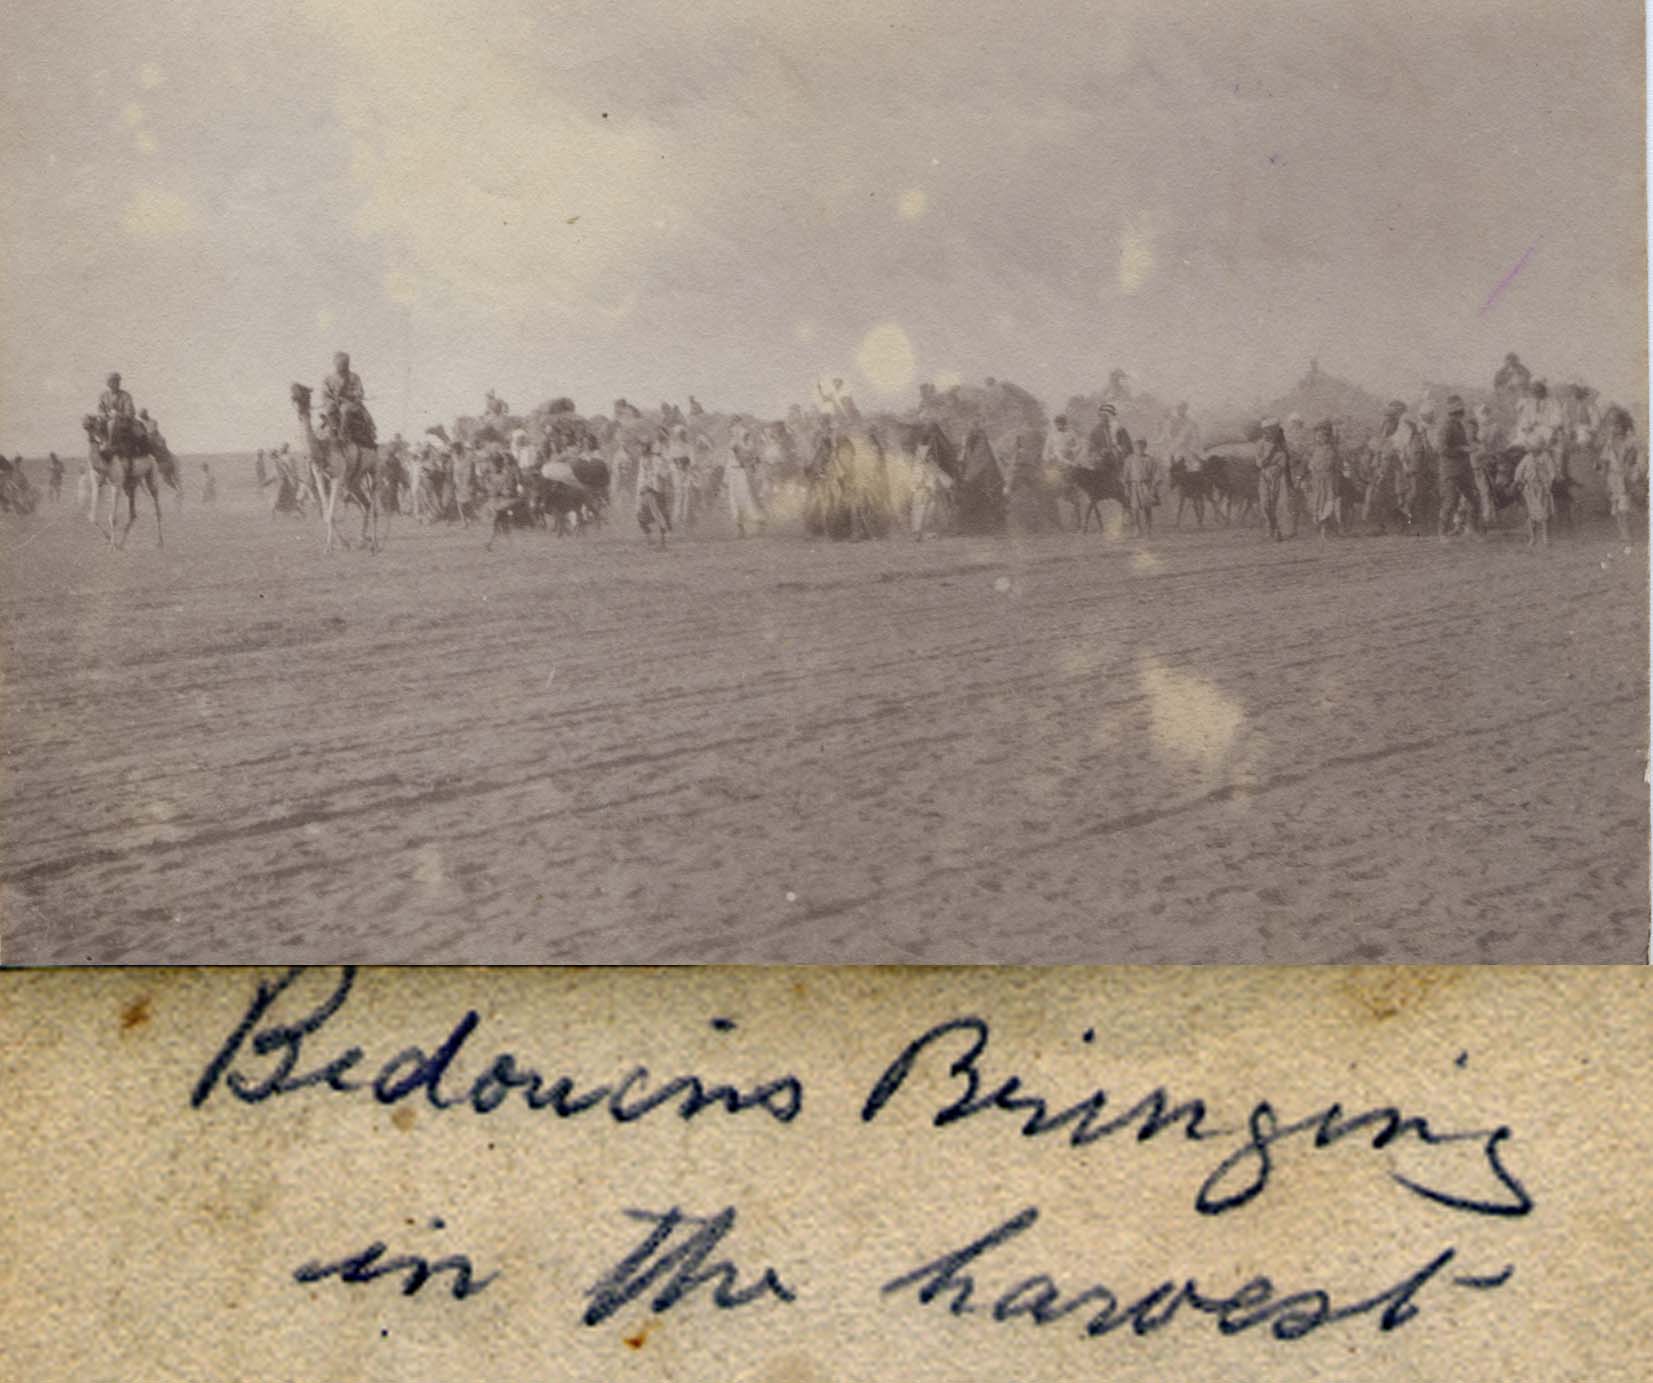 Bedouins Bringing
in the harvest